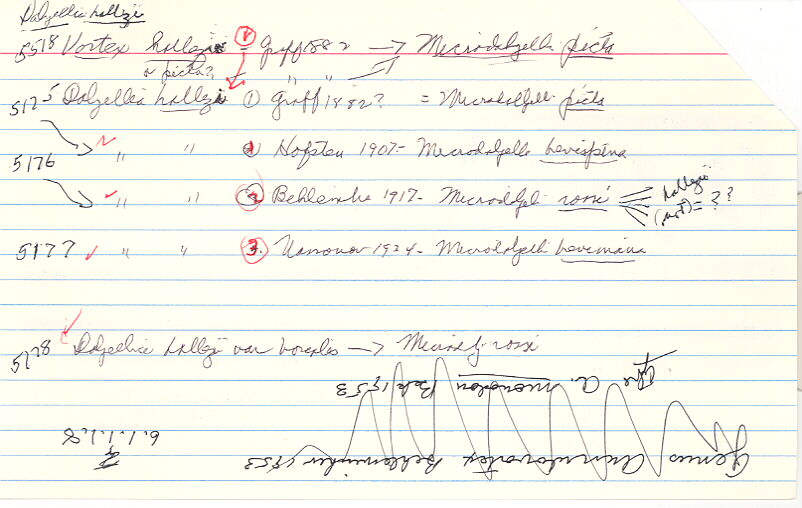 Dalyellia hallezi
5518 Vortex hallezi 1 = Graff 1882 → Microdalyellia picta
or picta?
" "
5175 Dalyellia hallezi 1 Graff 1882? = Microdalyellia picta
" " 1 Hofsten 1907 - Microdalyellia brevispina
5176
" " 2 Beklemishe 1917 - Microdalyelli rossi
hallezii
(part) = ??
5177 " " 3. Nasonov 1924 - Microdalyelli brevimana
5178 Dalyellia hallezi var borealis → Microd. rossi
The A. Bek 1953
6.1.1.1.8
Genus Beklemischev 1953